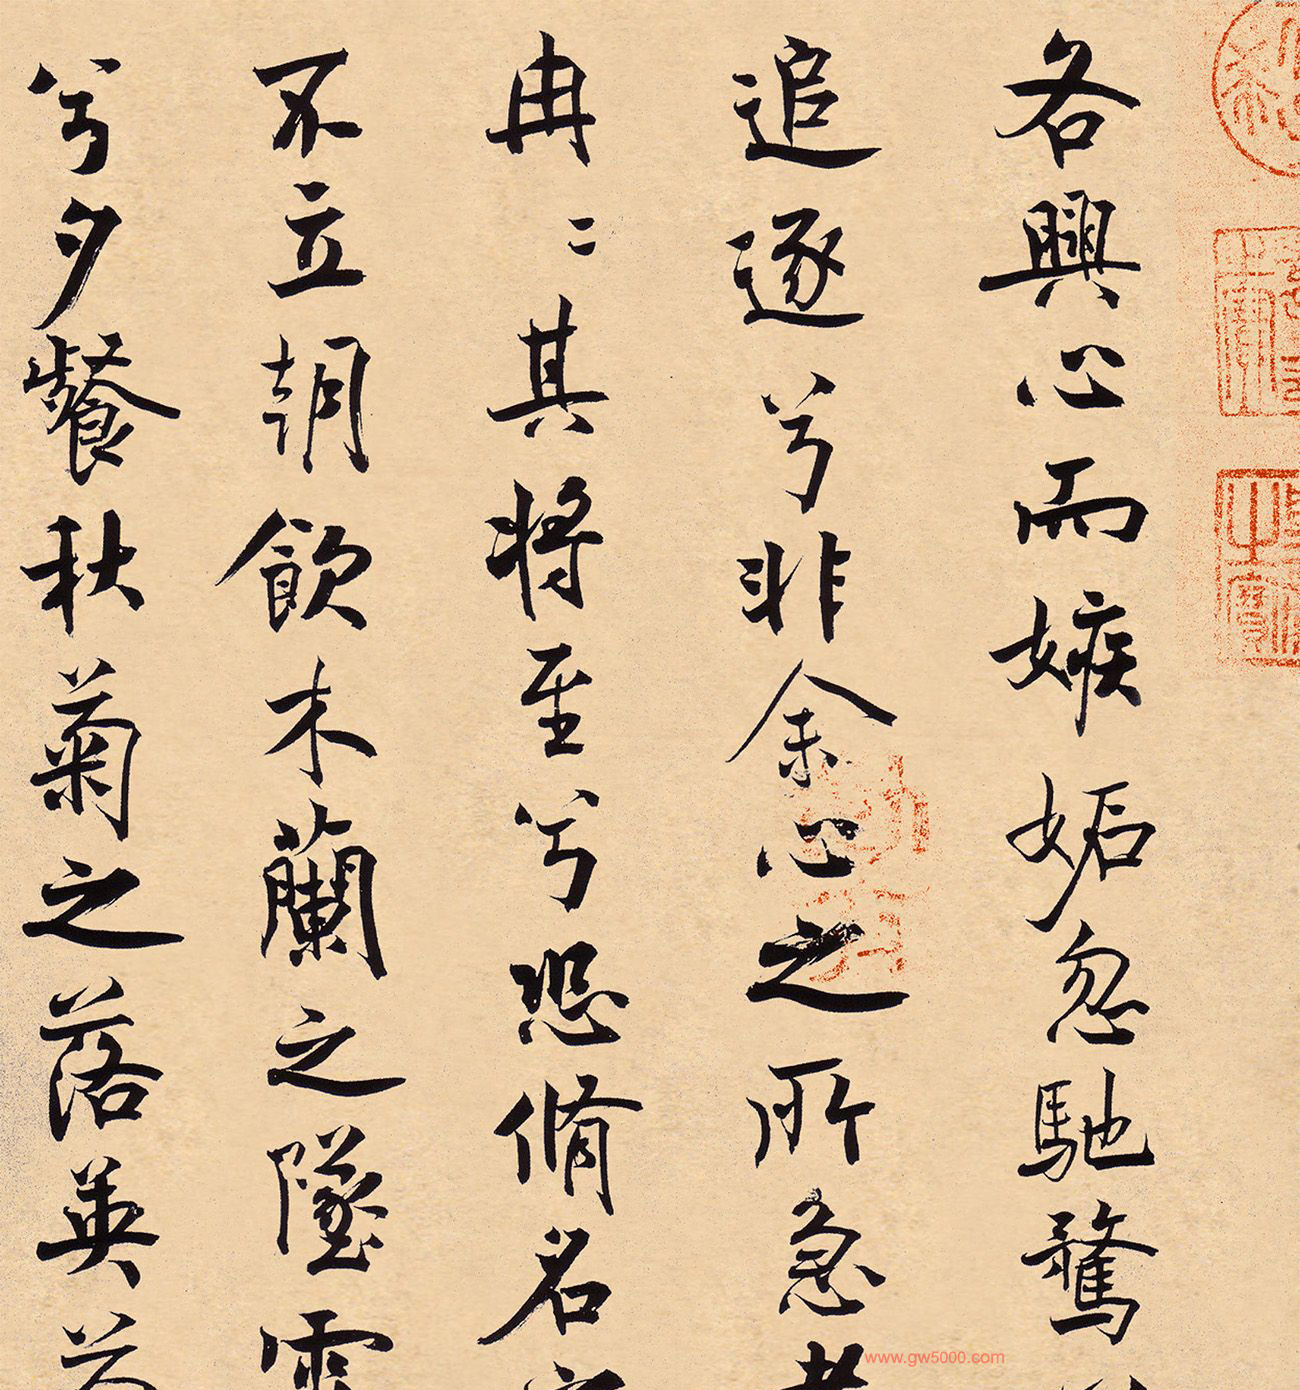 各興心而嫉妬忽馳騖
追逐兮非余心之所急老
冉〻其將至兮恐脩名
不立朝飲木蘭之墜露
兮夕餐秋菊之落英
www.gw5000.com